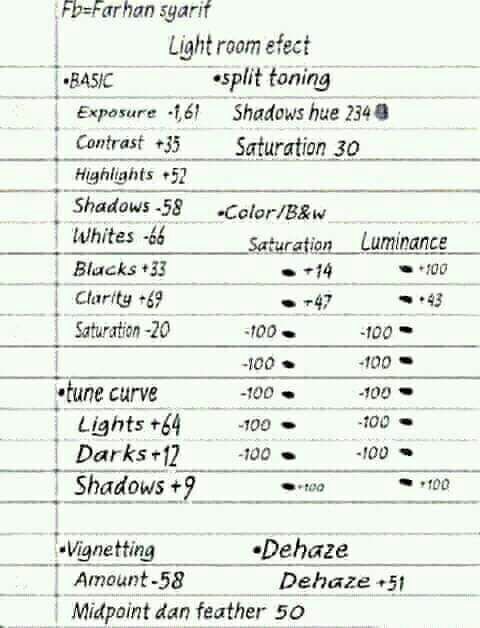 Fb=Farhan syarif
Light room efect
•BASIC
Exposure -1,61
Contrast +35
Highlights +52
Shadows -58
Whites -66
Blacks +33
Clarity +69
Saturation -20
•tune curve
Lights +64
Darks +12
Shadows +9
•split toning
Shadows hue 234
Saturation 30
•Color/B&w
Saturation Luminance
+14 +100
+47 +43
-100 -100
-100 -100
-100 -100
-100 -100
-100 -100
+100 +100
•Vignetting
Amount -58
Midpoint dan feather 50
•Dehaze
Dehaze +51